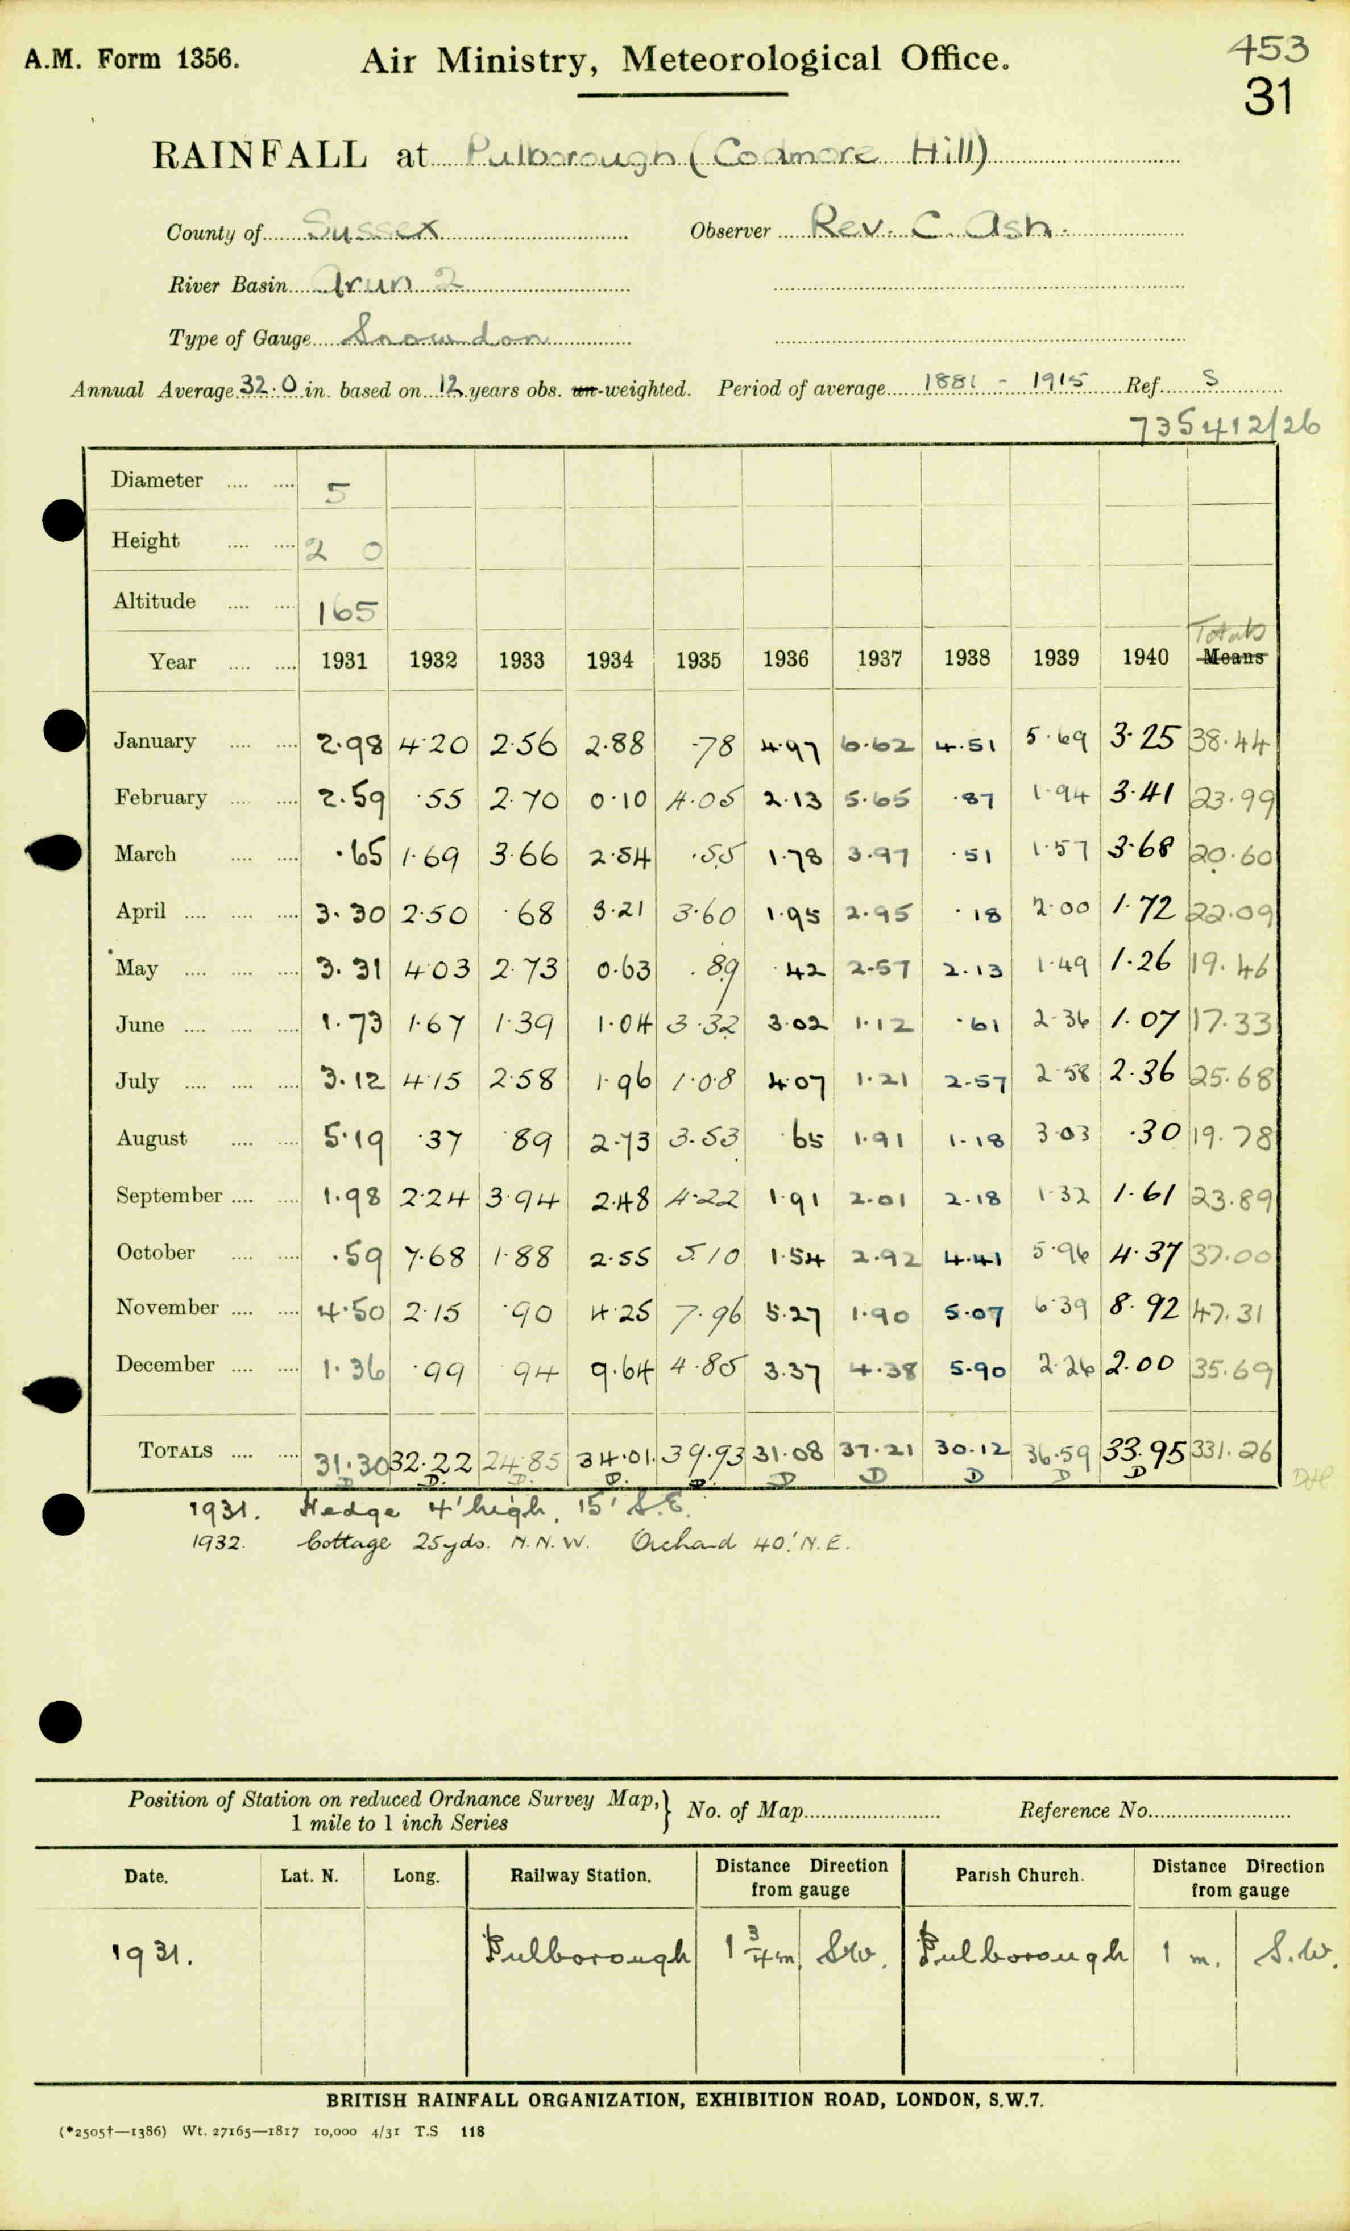 A.M. Form 1356. Air Ministry, Meteorological Office. 453
31
RAINFALL at Pulborough (Codmore Hill)
County of Sussex Observer Rev. C. Ash.
River Basin Arun 2
Type of Gauge Snowdon
Annual Average 32.0 in. based on 12 years obs. un-weighted. Period of average 1881 - 1915 Ref. S
735412/26
Diameter 5
Height 2 0
Altitude 165
Totals
Year 1931 1932 1933 1934 1935 1936 1937 1938 1939 1940 Means
January 2.98 4.20 2.56 2.88 .78 4.97 6.62 4.51 5.69 3.25 38.44
February 2.59 .55 2.70 0.10 4.05 2.13 5.65 .87 1.94 3.41 23.99
March .65 1.69 3.66 2.54 .55 1.78 3.97 .51 1.57 3.68 20.60
April 3.30 2.50 .68 3.21 3.60 1.95 2.95 .18 2.00 1.72 22.09
May 3.31 4.03 2.73 0.63 .89 .42 2.57 2.13 1.49 1.26 19.46
June 1.73 1.67 1.39 1.04 3.32 3.02 1.12 .61 2.36 1.07 17.33
July 3.12 4.15 2.58 1.96 1.08 4.07 1.21 2.57 2.58 2.36 25.68
August 5.19 .37 .89 2.73 3.53 .65 1.91 1.18 3.03 .30 19.78
September 1.98 2.24 3.94 2.48 4.22 1.91 2.01 2.18 1.32 1.61 23.89
October .59 7.68 1.88 2.55 5.10 1.54 2.92 4.41 5.96 4.37 37.00
November 4.50 2.15 .90 4.25 7.96 5.27 1.90 5.07 6.39 8.92 47.31
December 1.36 .99 .94 9.64 4.85 3.37 4.38 5.90 2.26 2.00 35.69
TOTALS 31.30 32.22 24.85 34.01 39.93 31.08 37.21 30.12 36.59 33.95 331.26
D D. D. D. D. D D D D D
1931. Hedge 4' high, 15' S.E.
1932. Cottage 25yds. N.N.W. Orchard 40' N.E.
Position of Station on reduced Ordnance Survey Map, } No. of Map Reference No.
1 mile to 1 inch Series
Date. Lat. N. Long. Railway Station. Distance Direction from gauge Parish Church. Distance Direction from gauge
1931. Pulborough 1 3/4 m SW. Pulborough 1 m. S.W.
BRITISH RAINFALL ORGANIZATION, EXHIBITION ROAD, LONDON, S.W.7.
(*2505†—1386) Wt. 27165—1817 10,000 4/31 T.S 118